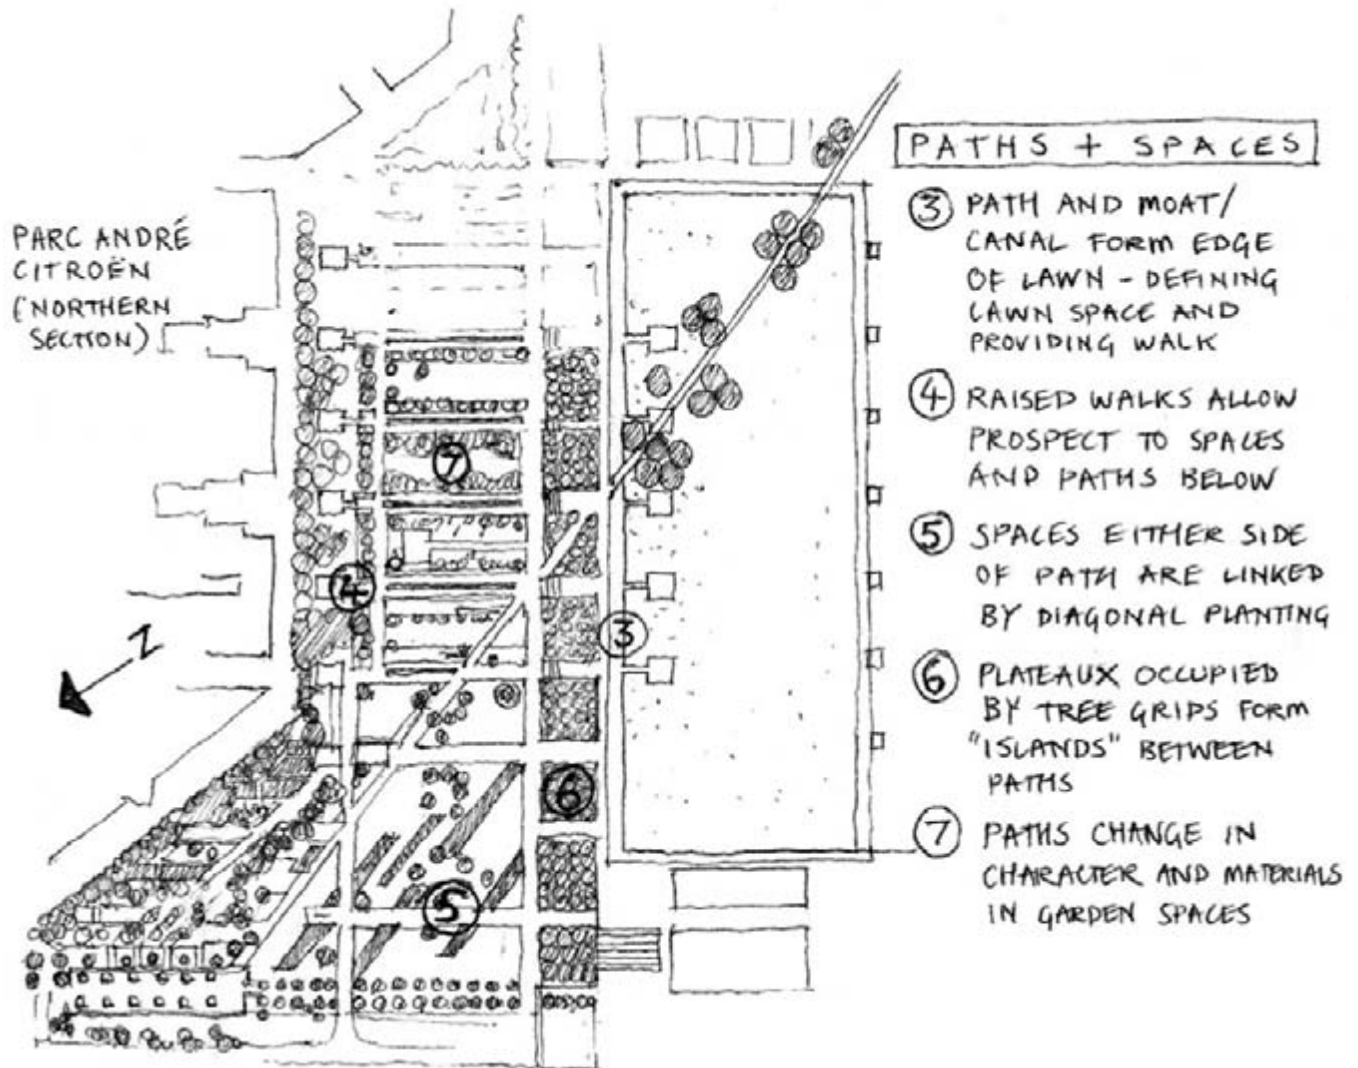 PATHS + SPACES
PARC ANDRÉ
CITROËN
(NORTHERN
SECTION)
③ PATH AND MOAT/
CANAL FORM EDGE
OF LAWN - DEFINING
LAWN SPACE AND
PROVIDING WALK
④ RAISED WALKS ALLOW
PROSPECT TO SPACES
AND PATHS BELOW
⑤ SPACES EITHER SIDE
OF PATH ARE LINKED
BY DIAGONAL PLANTING
⑥ PLATEAUX OCCUPIED
BY TREE GRIPS FORM
"ISLANDS" BETWEEN
PATHS
⑦ PATHS CHANGE IN
CHARACTER AND MATERIALS
IN GARDEN SPACES
⑦
④
③
N
⑥
⑤